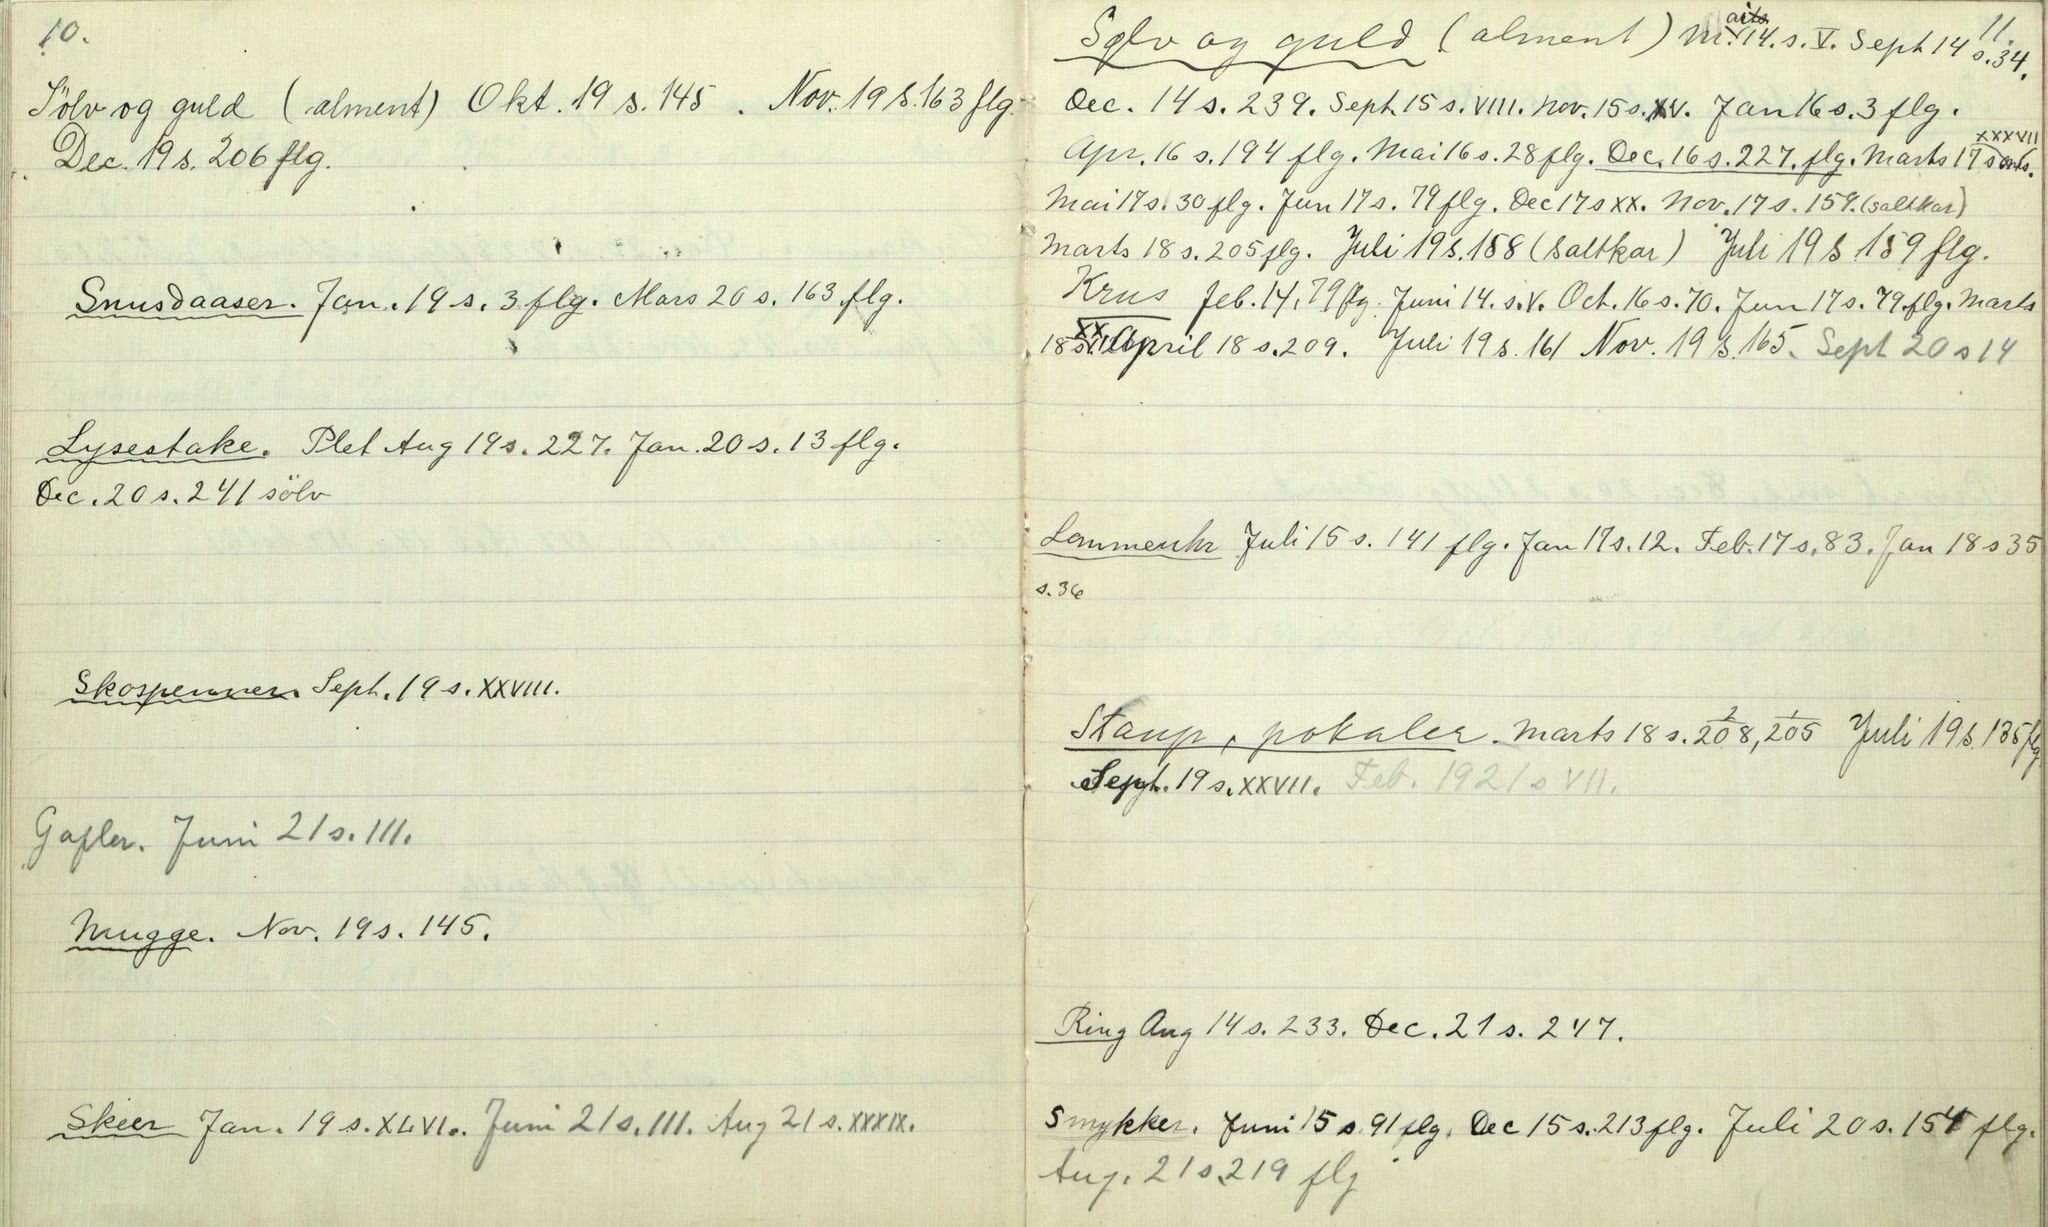 10.
Sölv og guld (alment) Okt. 19 s. 145. Nov. 19 s. 163 flg.
Dec. 19 s. 206 flg.
Snusdaaser. Jan. 19 s. 3 flg. Mars 20 s. 163 flg.
Lysestake. Plet Aug 19 s. 227. Jan. 20 s. 13 flg.
Dec. 20 s. 241 sölv
Skospenner. Sept. 19 s. XXVIII.
Gafler. Juni 21 s. III.
Mugge. Nov. 19 s. 145.
Skeer Jan. 19 s. XLVI. Juni 21 s. III. Aug 21 s. XXXIX.
11.
Sølv og guld (alment) 14. s. V. Sept 14 s. 34.
Dec. 14 s. 239. Sept. 15 s. VIII. Nov. 15 s. XV. Jan 16 s. 3 flg.
Apr. 16 s. 194 flg. Mai 16 s. 28 flg. Dec. 16 s. 227. flg. Marts 17 s XXXVII
Mai 17 s. 30 flg. Jun 17 s. 79 flg. Dec 17 s XX. Nov. 17 s. 159. (saltkar)
Marts 18 s. 205 flg. Juli 19 s. 158 (saltkar) Juli 19 s. 159 flg.
Krus Feb. 14. 79 flg. Juni 14. s. V. Oct. 16 s. 70. Jun 17 s. 79. flg. Marts
18 s. April 18 s. 209. Juli 19 s. 161 Nov. 19 s. 165. Sept 20 s 14
Lommeuhr Juli 15 s. 141 flg. Jan 17 s. 12. Feb. 17 s. 83. Jan 18 s 35
s. 36
Staup, pokaler. Marts 18 s. 208, 205 Juli 19 s. 135 flg
Sept. 19 s. XXVII. Feb. 1921 s VII.
Ring Aug 14 s. 233. Dec. 21 s. 247.
Smykker. Juni 15 s. 91 flg. Dec 15 s. 213 flg. Juli 20 s. 154 flg.
Aug. 21 s. 219 flg